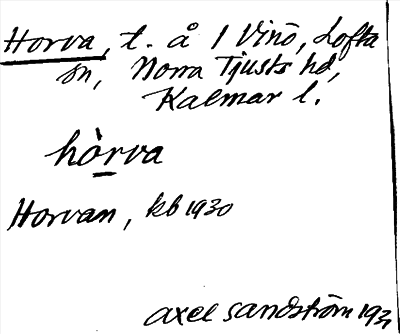 Horva, t. å 1 Vinö, Lofta
sn, Norra Tjusts hd,
Kalmar l.
hòrva
Horvan, kb 1930
Axel Sandström 193